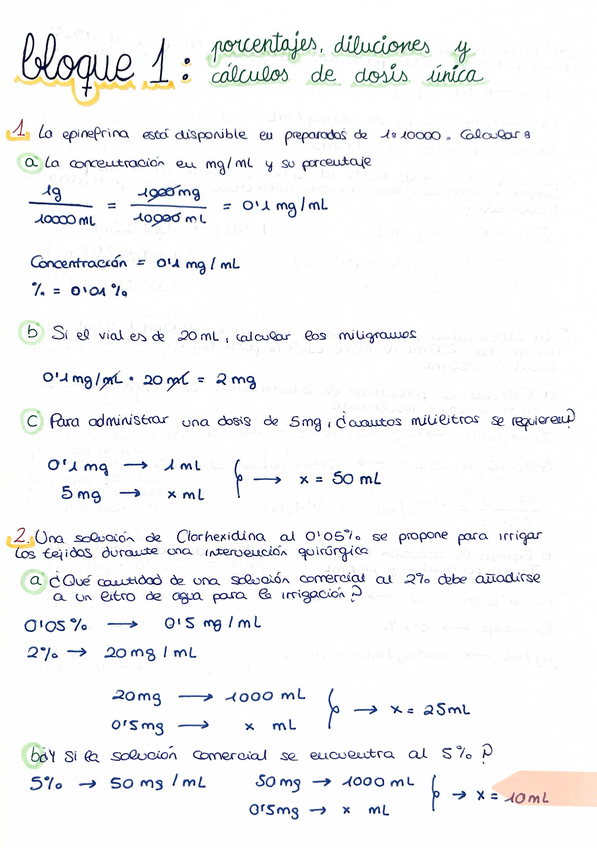 bloque 1: porcentajes, diluciones y
cálculos de dosis única
1. La epinefrina está disponible en preparados de 1:10000. Calcular:
a La concentración en mg/mL y su porcentaje
1g / 10000 mL = 1000 mg / 10000 mL = 0'1 mg/mL
Concentración = 0'1 mg/mL
% = 0'01 %
b Si el vial es de 20 mL, calcular los miligramos
0'1 mg/mL · 20 mL = 2 mg
c Para administrar una dosis de 5mg, ¿cuantos mililitros se requieren?
0'1 mg → 1 mL
5 mg → x mL } → x = 50 mL
2. Una solución de Clorhexidina al 0'05% se propone para irrigar
los tejidos durante una intervención quirúrgica
a ¿Qué cantidad de una solución comercial al 2% debe añadirse
a un litro de agua para la irrigación?
0'05 % → 0'5 mg/mL
2% → 20 mg/mL
20mg → 1000 mL
0'5mg → x mL } → x = 25mL
b ¿Y si la solución comercial se encuentra al 5%?
5% → 50 mg/mL 50 mg → 1000 mL
0'5mg → x mL } → x = 10mL